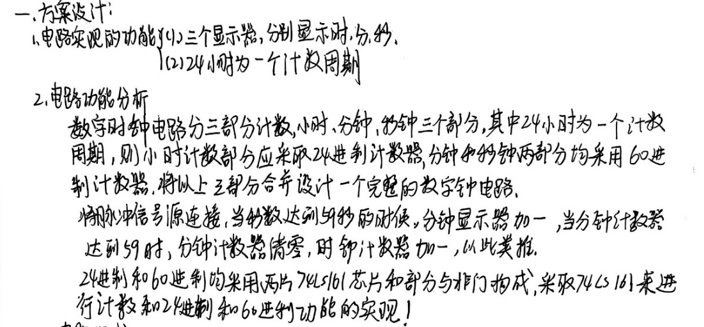 一、方案设计:
1.电路实现的功能{(1)三个显示器,分别显示时.分.秒.
(2)24小时为一个计数周期
2.电路功能分析
数字时钟电路分三部分计数,小时、分钟、秒钟三个部分,其中24小时为一个计数
周期,则小时计数部分应采取24进制计数器,分钟和秒钟两部分均采用60进
制计数器.将以上三部分合并设计一个完整的数字钟电路.
将脉冲信号源连接,当秒数达到59秒的时候,分钟显示器加一,当分钟计数器
达到59时,分钟计数器清零,时钟计数器加一,以此类推.
24进制和60进制均采用两片74LS161芯片和部分与非门构成,采取74LS161来进
行计数和24进制和60进制功能的实现!